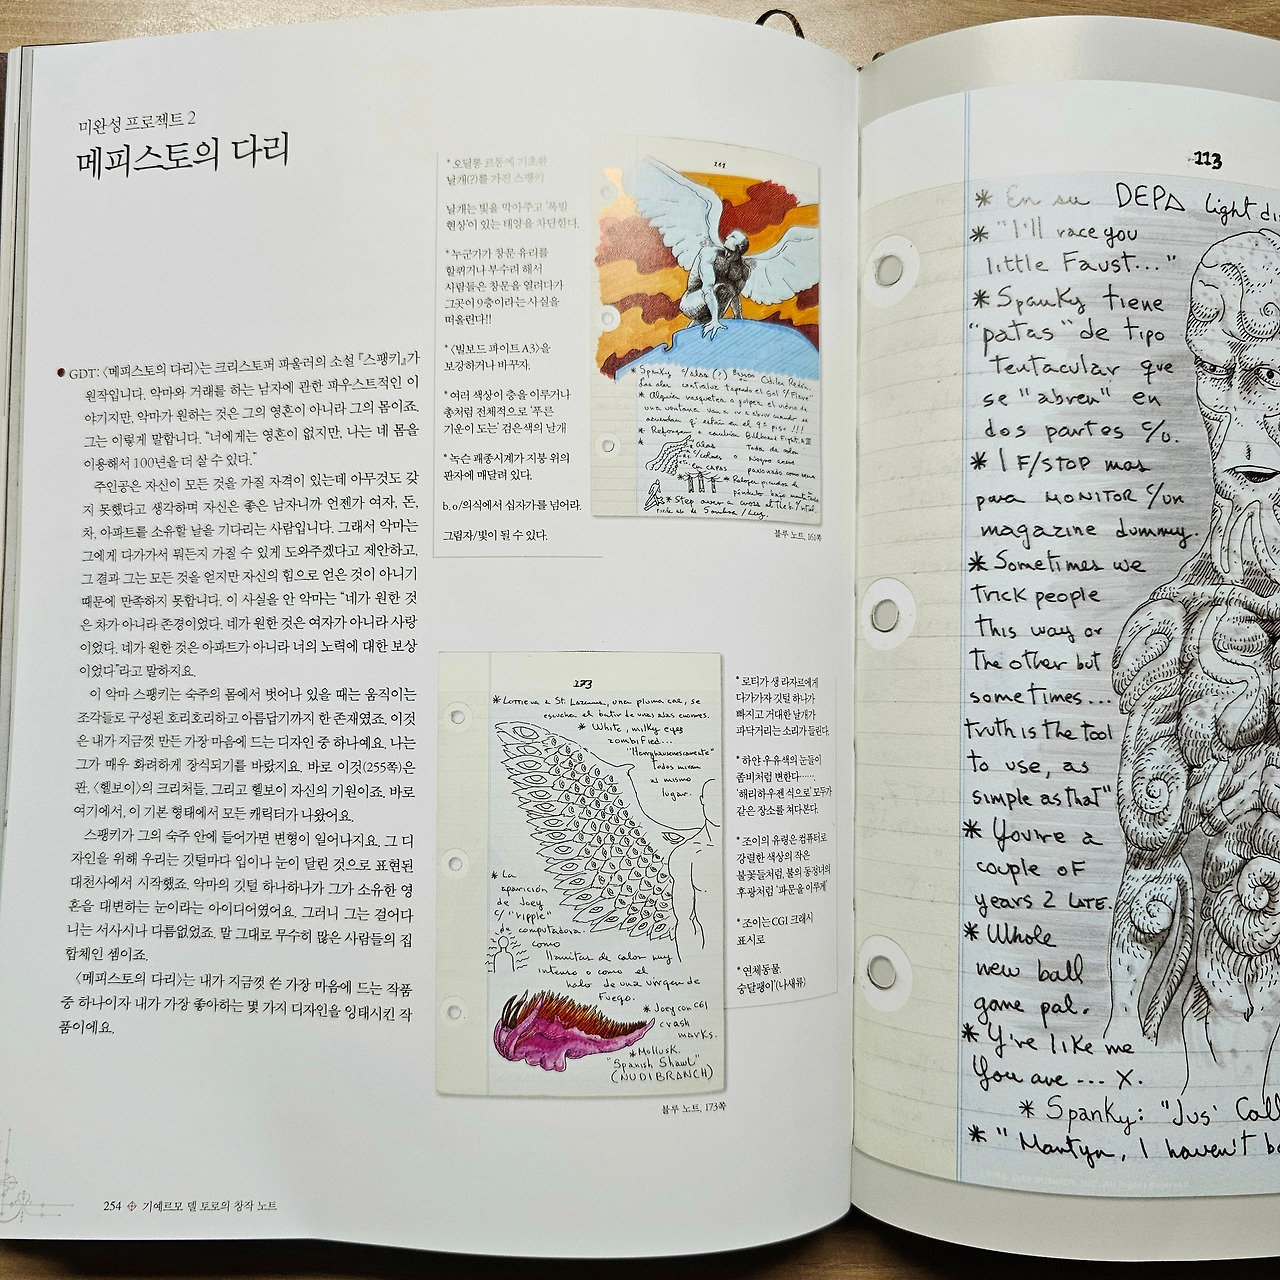 미완성 프로젝트 2
메피스토의 다리
GDT: 〈메피스토의 다리〉는 크리스토퍼 파울러의 소설 『스팽키』가
원작입니다. 악마와 거래를 하는 남자에 관한 파우스트적인 이
야기지만, 악마가 원하는 것은 그의 영혼이 아니라 그의 몸이죠.
그는 이렇게 말합니다. “너에게는 영혼이 없지만, 나는 네 몸을
이용해서 100년을 더 살 수 있다.”
주인공은 자신이 모든 것을 가질 자격이 있는데 아무것도 갖
지 못했다고 생각하며 자신은 좋은 남자니까 언젠가 여자, 돈,
차, 아파트를 소유할 날을 기다리는 사람입니다. 그래서 악마는
그에게 다가가서 뭐든지 가질 수 있게 도와주겠다고 제안하고,
그 결과 그는 모든 것을 얻지만 자신의 힘으로 얻은 것이 아니기
때문에 만족하지 못합니다. 이 사실을 안 악마는 “네가 원한 것
은 차가 아니라 존경이었다. 네가 원한 것은 여자가 아니라 사랑
이었다. 네가 원한 것은 아파트가 아니라 너의 노력에 대한 보상
이었다”라고 말하지요.
이 악마 스팽키는 숙주의 몸에서 벗어나 있을 때는 움직이는
조각들로 구성된 호리호리하고 아름답기까지 한 존재였죠. 이것
은 내가 지금껏 만든 가장 마음에 드는 디자인 중 하나예요. 나는
그가 매우 화려하게 장식되기를 바랐지요. 바로 이것(255쪽)은
판, 〈헬보이〉의 크리처들, 그리고 헬보이 자신의 기원이죠. 바로
여기에서, 이 기본 형태에서 모든 캐릭터가 나왔어요.
스팽키가 그의 숙주 안에 들어가면 변형이 일어나지요. 그 디
자인을 위해 우리는 깃털마다 입이나 눈이 달린 것으로 표현된
대천사에서 시작했죠. 악마의 깃털 하나하나가 그가 소유한 영
혼을 대변하는 눈이라는 아이디어였어요. 그러니 그는 걸어다
니는 서사시나 다름없었죠. 말 그대로 무수히 많은 사람들의 집
합체인 셈이죠.
〈메피스토의 다리〉는 내가 지금껏 쓴 가장 마음에 드는 작품
중 하나이자 내가 가장 좋아하는 몇 가지 디자인을 잉태시킨 작
품이에요.
* 오딜롱 르동에 기초한
날개(?)를 가진 스팽키
날개는 빛을 막아주고 ‘폭발
현상’이 있는 태양을 차단한다.
* 누군가가 창문 유리를
할퀴거나 부수려 해서
사람들은 창문을 열러다가
그곳이 9층이라는 사실을
떠올린다!!
* 〈빌보드 파이트 A3〉을
보강하거나 바꾸자.
* 여러 색상이 층을 이루거나
총처럼 전체적으로 ‘푸른
기운이 도는’ 검은색의 날개
* 녹슨 괘종시계가 지붕 위의
판자에 매달려 있다.
b.o/의식에서 십자가를 넘어라.
그림자/빛이 될 수 있다.
161
* Spanky c/alas (?) Based on Odilon Redon.
Las alas contraluz tapando el sol c/"Flare"
* Alguien rasguetea o golpea el vidrio de
una ventana
블루 노트, 161쪽
173
* Lottie va a St. Lazarus, una pluma cae, se
escucha el batir de unas alas enormes.
* White, milky eyes
zombified...
"Harryhausenescamente"
todos miran
al mismo
lugar.
* La
aparición
de Joey
c/ "ripple"
de computadora.
como
llamitas de color muy
intenso o como el
halo de una virgen de
Fuego.
* Joey con CGI
crash
marks.
* Mollusk.
"Spanish Shawl"
(NUDIBRANCH)
블루 노트, 173쪽
* 로티가 생 라자르에게
다가가자 깃털 하나가
빠지고 거대한 날개가
파닥거리는 소리가 들린다.
* 하얀 우유색의 눈들이
좀비처럼 변한다……
‘해리하우젠 식으로’ 모두가
같은 장소를 쳐다본다.
* 조이의 유령은 컴퓨터로
강렬한 색상의 작은
불꽃들처럼, 불의 동정녀의
후광처럼 ‘파문을 이루게’
* 조이는 CGI 크래시
표시로
* 연체동물.
숭달팽이’(나새류)
254 기예르모 델 토로의 창작 노트
113
* En su DEPA light
* "I'll race you
little Faust..."
* Spanky tiene
"patas" de tipo
tentacular que
se "abren" en
dos partes c/u.
* 1 F/STOP mas
para MONITOR c/un
magazine dummy.
* Sometimes we
trick people
this way or
the other but
sometimes...
truth is the tool
to use, as
simple as that"
* You're a
couple of
years 2 LATE.
* Whole
new ball
game pal.
* Y're like me
You are ... X.
* Spanky: "Jus' Call
* "Martyn, I haven't